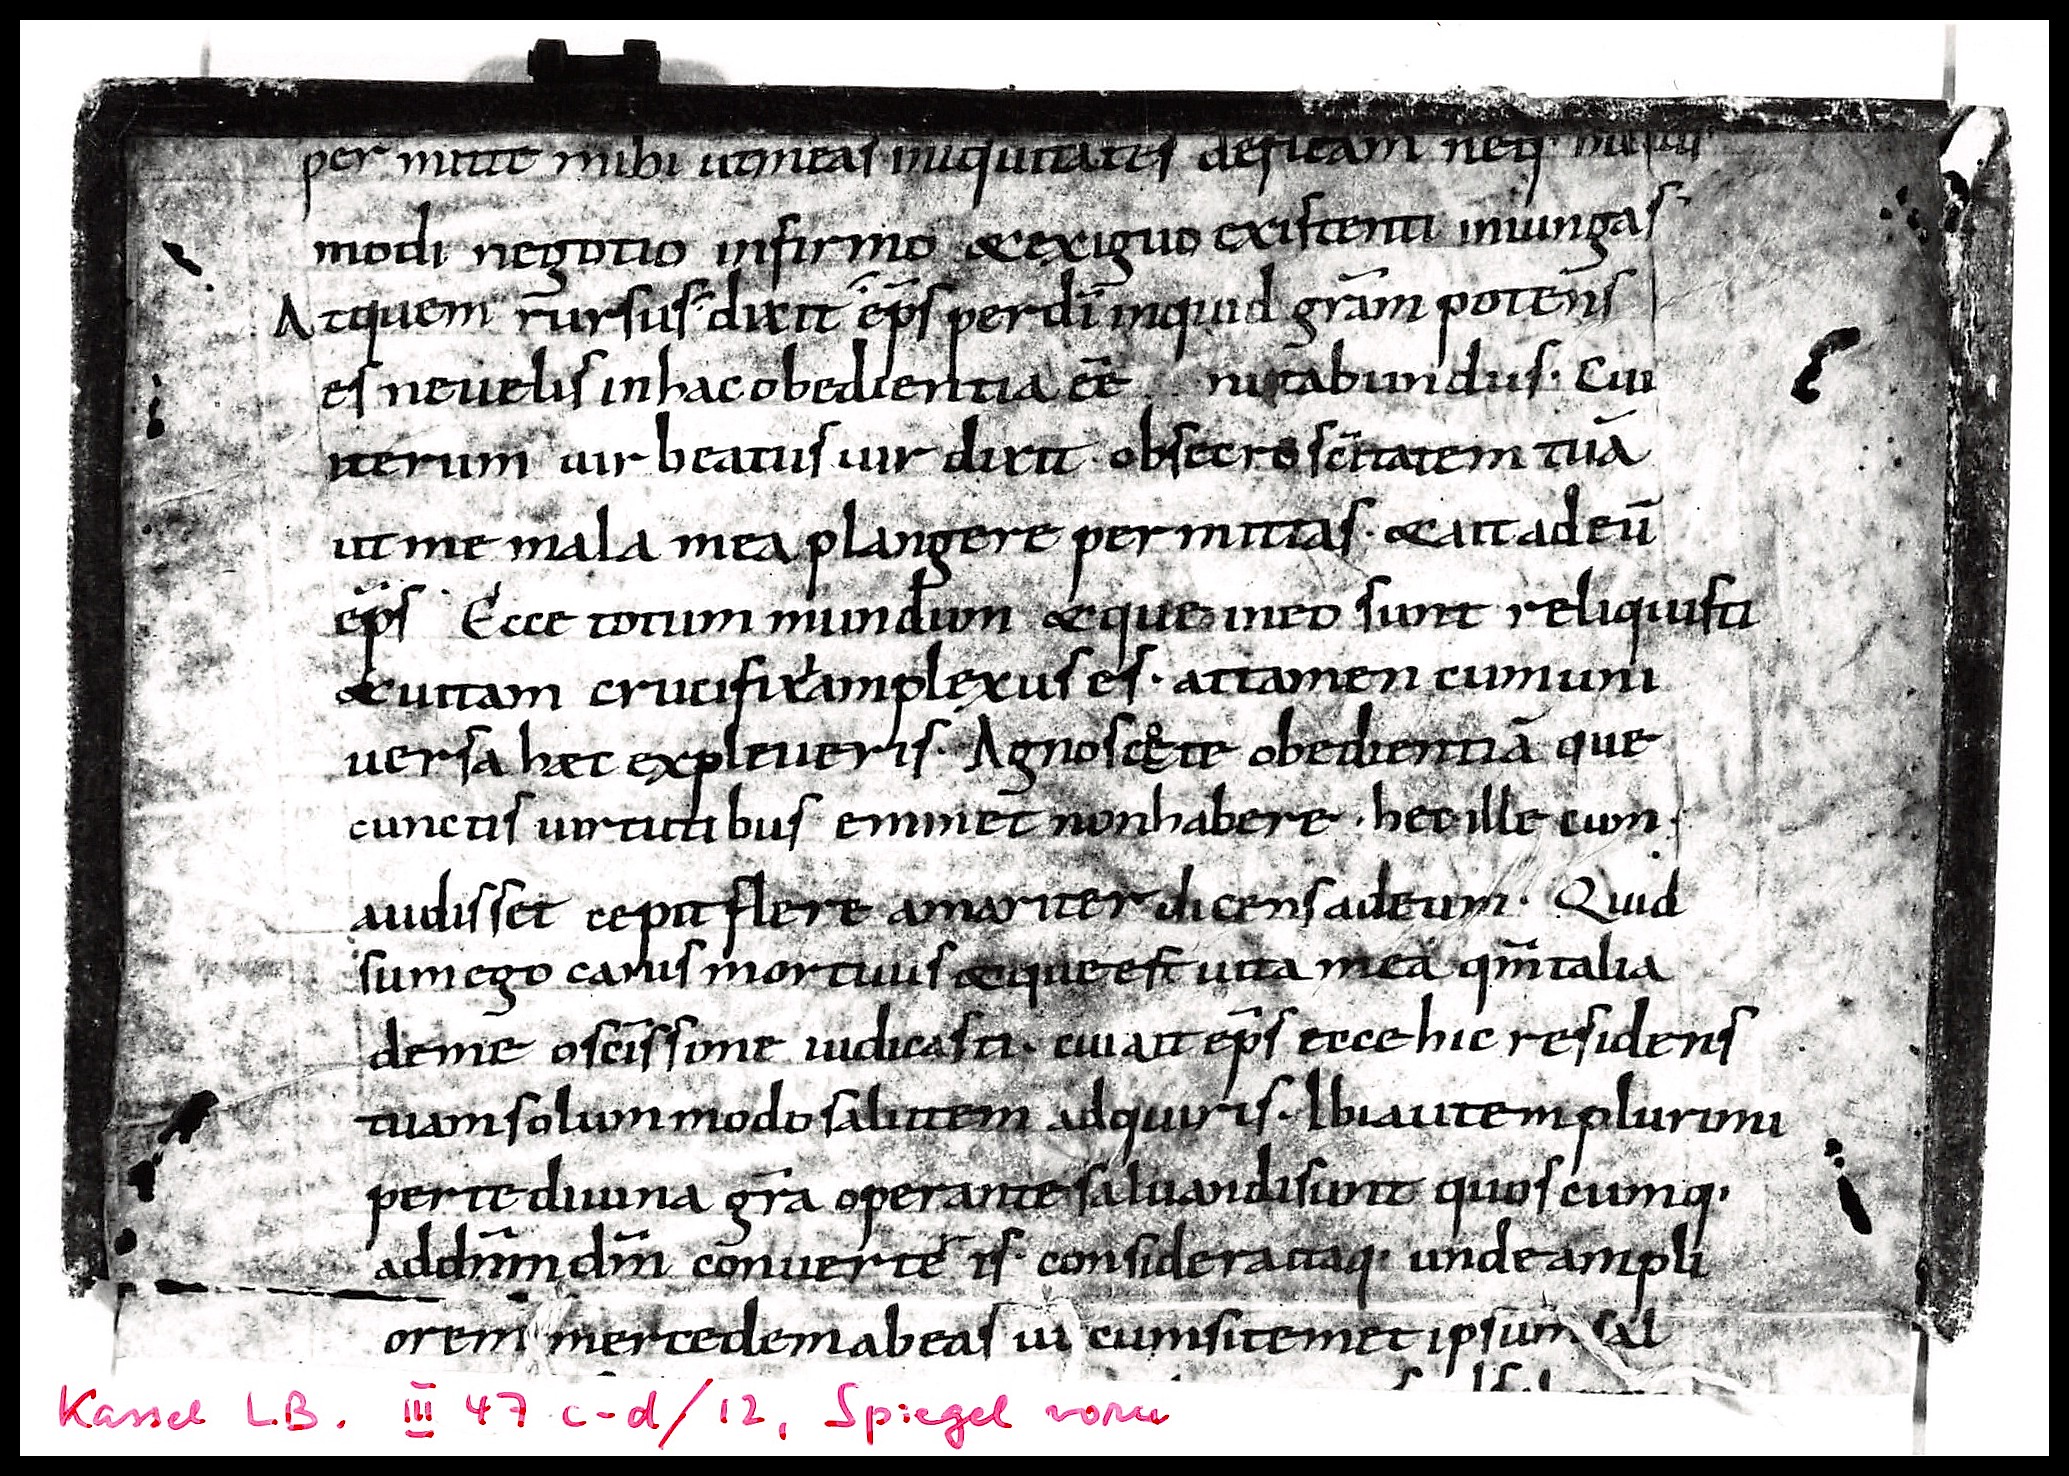 per mitte mihi ut meas iniquitates defleam neq·
modi negotio infirmo & exiguo existenti iniungas·
Atquem rursus· dixit ep̄s perdi inquid grām potens
es ne uelis in hac obedientia eē nutabundus· Cui
iterum uir beatus uir dixit· obsecro scitatem tuā
ut me mala mea plangere permittas· & ait ad eū
ep̄s Ecce totum mundum & que in eo sunt reliquisti
& uitam crucifixi amplexus es· attamen cum uni
uersa hec expleueris· Agnosce te obedientiā que
cunctis uirtutibus eminet non habere· hec ille cum
audisset cepit flere amariter dicens ad eum· Quid
sum ego canis mortuus & que est uita mea qm̄ talia
de me o scissime iudicasti· cui ait ep̄s ecce hic residens
tuam solum modo salutem adquiris· Ibi autem plurimi
per te diuina grā operante saluandi sunt quoscumq·
ad dnm̄ dm̄ conuerte is· considera itaq· unde ampli
orem mercedem abeas ui cum sitemet ipsum sal
Kassel L.B. III 47 c-d/12, Spiegel vorn